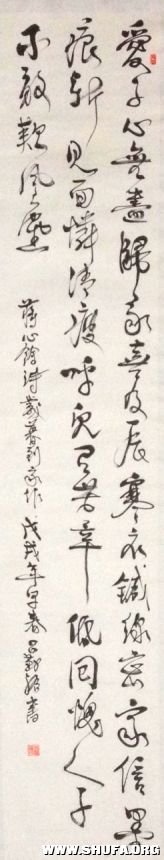 愛子心無盡歸家喜及辰寒衣鍼線密家信墨
痕新見面憐清瘦呼兒問苦辛低回愧人子
不敢歎風塵
蔣心餘詩歲暮到家作戊戌年早春書
WWW.SHUFA.ORG